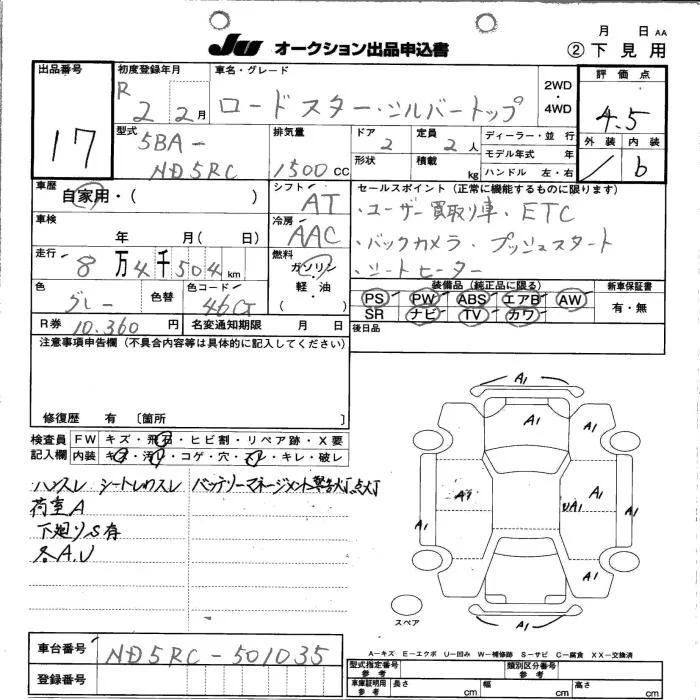 月 日 AA
Ju オークション出品申込書
② 下見用
出品番号
17
初度登録年月
R 2 2月
車名・グレード
ロードスター・シルバートップ
2WD・4WD
評価点
4.5
外装 内装
/ b
型式
5BA-
ND5RC
排気量
1500CC
ドア
2
定員
2人
形状
積載
kg
ディーラー・並行
モデル年式 年
ハンドル 左・右
車歴
自家用・( )
シフト
AT
セールスポイント(正常に機能するものに限ります)
・ユーザー買取り車・ETC
・バックカメラ・プッシュスタート
・シートヒーター
車検
年 月( 日)
冷房
AAC
走行
8万4千504km
燃料
ガソリン・軽油
( )
色
グレー
色替
色コード
46G
装備品(純正品に限る)
PS PW ABS エアB AW
SR ナビ TV カワ
新車保証書
有・無
R券
10,360円
名変通知期限 月 日
後日品
注意事項申告欄(不具合内容等は具体的に記入してください)
修復歴 有 〔箇所 〕
検査員記入欄
FW キズ・飛石・ヒビ割・リペア跡・X要
内装 キズ・汚れ・コゲ・穴・スレ・キレ・破れ
ハンスレ シートレカスレ バッテリーマネージメント警告灯点灯
荷室A
下廻りS有
各A.U
A1
A1
A1
A1
A1
UA1
A1
A1
A1
スペア
A-キズ E-エクボ U-凹み W-補修跡 S-サビ C-腐食 XX-交換済
車台番号
ND5RC-501035
登録番号
型式指定番号 参考
類別区分番号 参考
車庫証明用 参考
長さ cm
幅 cm
高さ cm